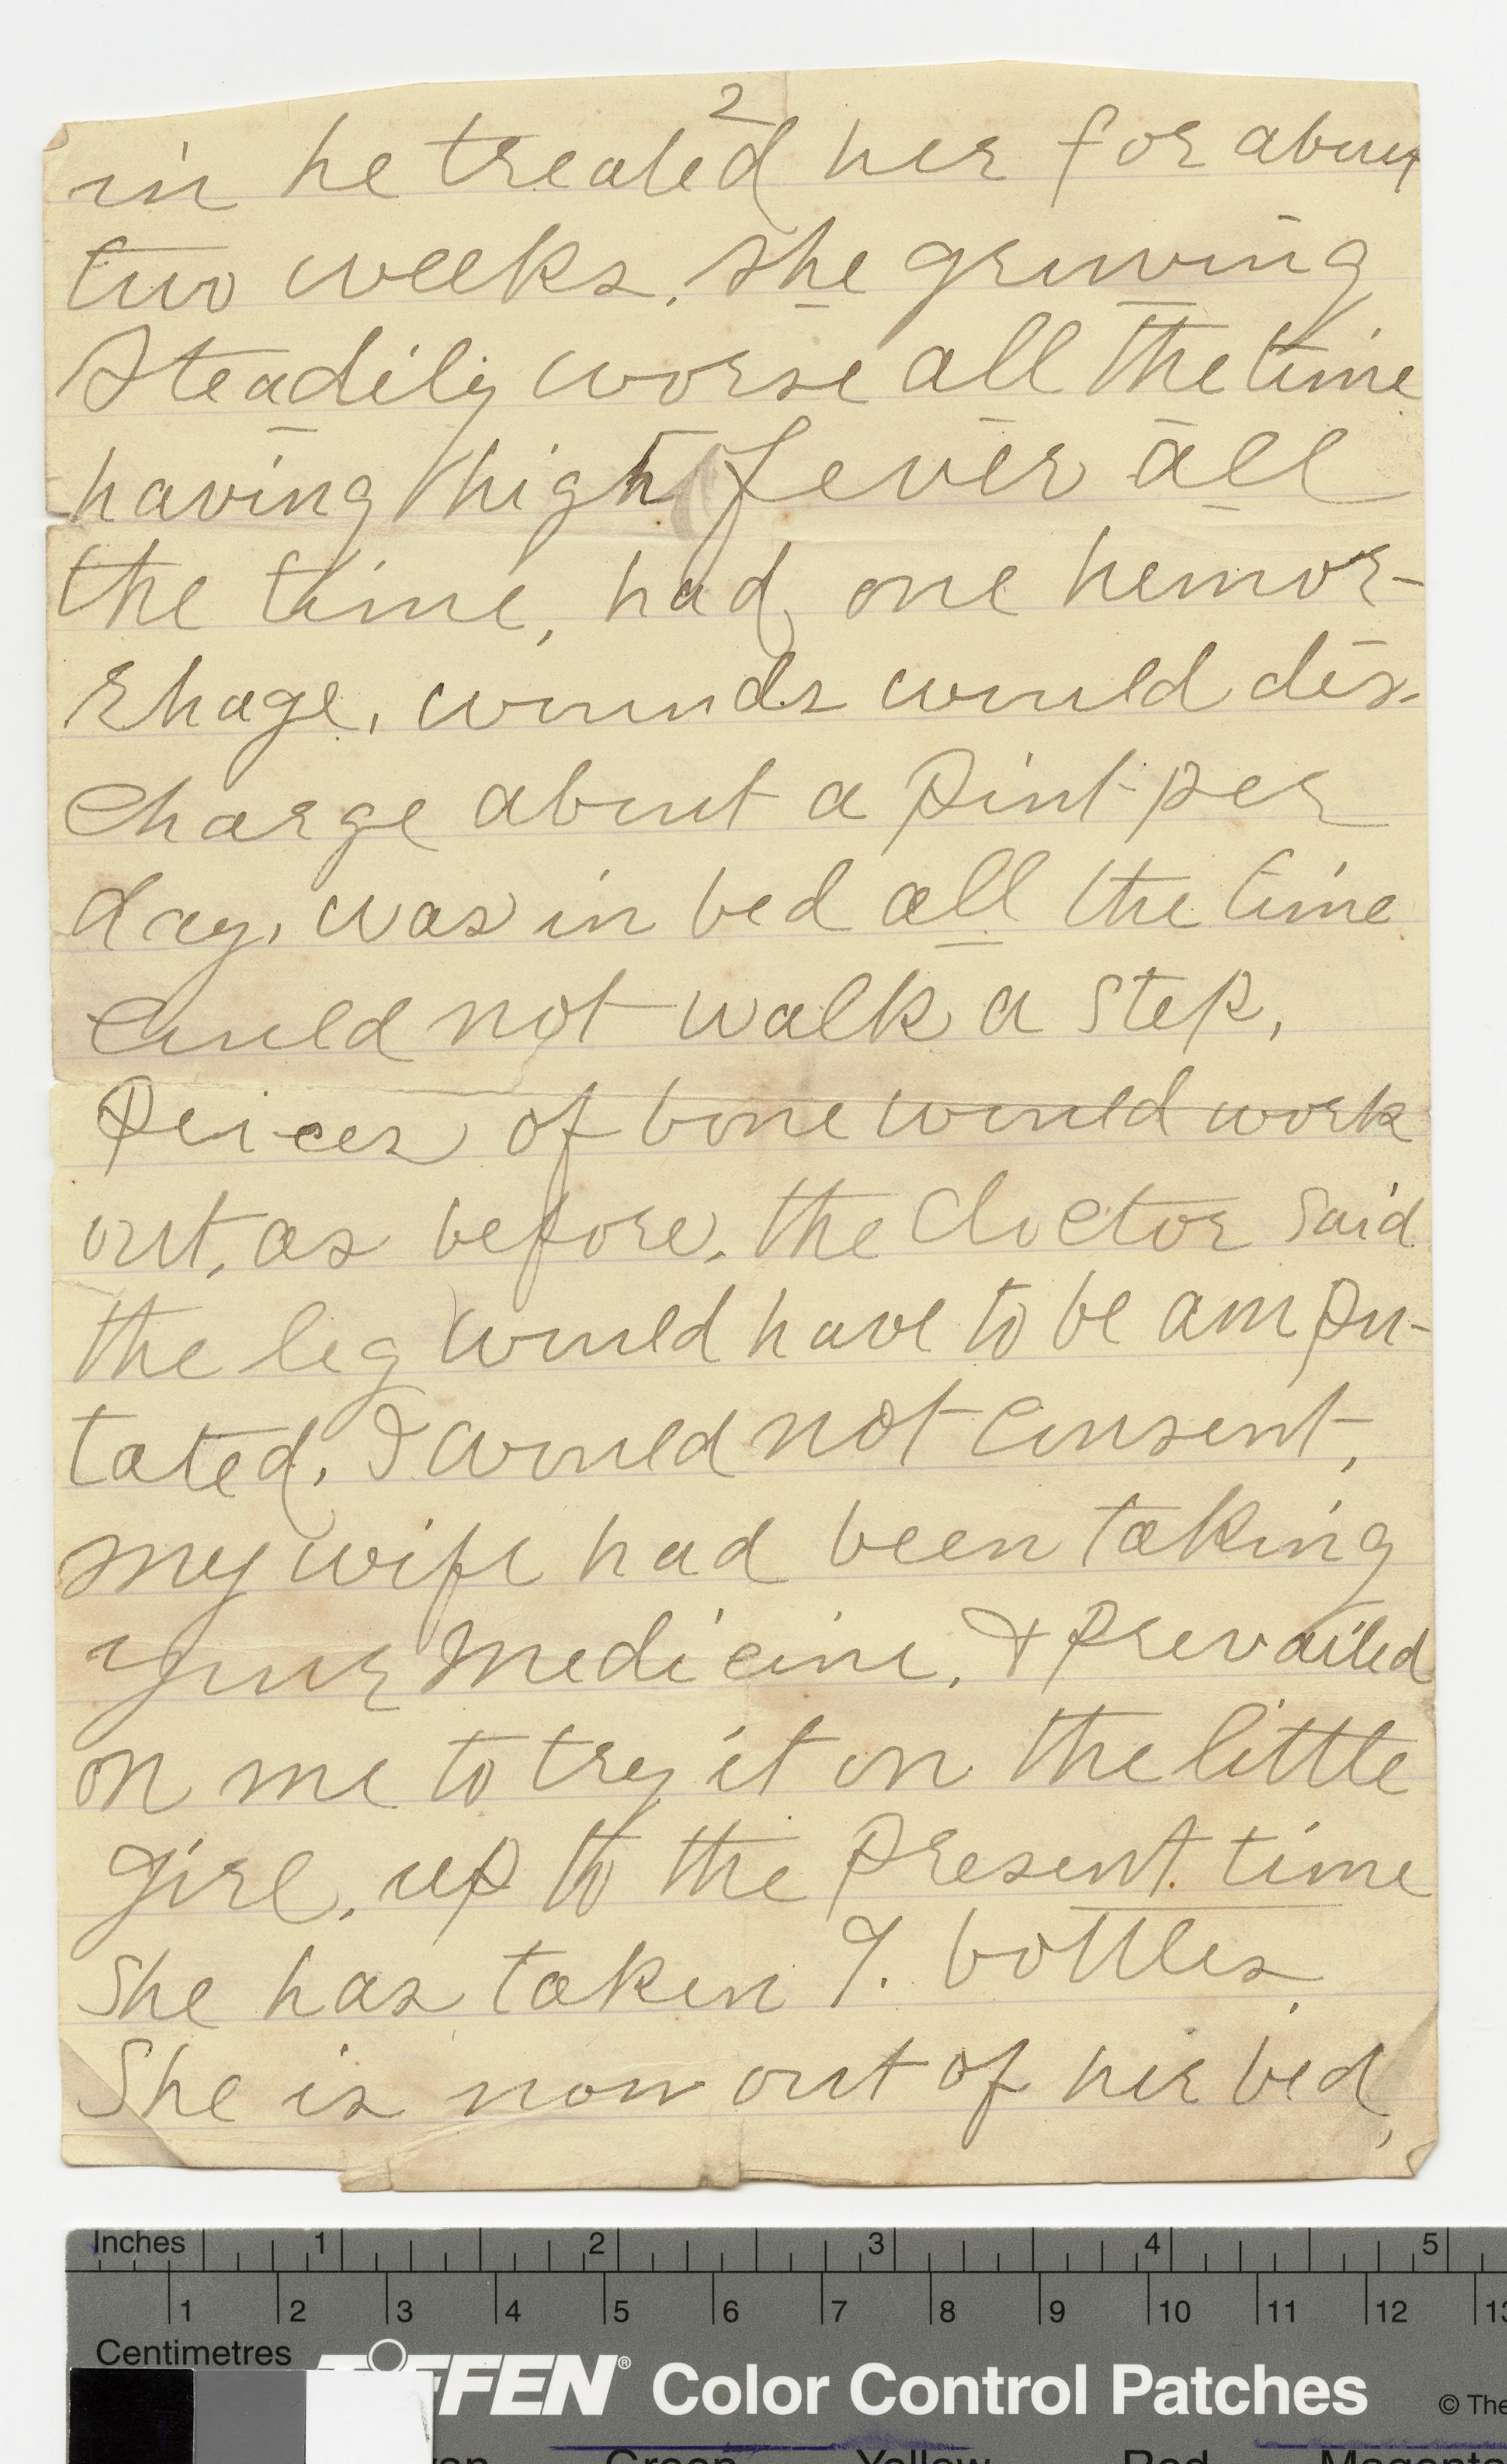 2
in he treated her for about
two weeks. She growing
Steadily worse all the time
having high fever all
the time, had one hemor-
rhage, wounds would dis-
charge about a pint per
day, was in bed all the time
Could not walk a step,
Peices of bone would work
out, as before, the doctor said
the leg would have to be ampu-
tated, I would not consent,
my wife had been taking
your medicine, & prevailed
on me to try it on the little
girl, up to the present time
She has taken 9. bottles,
She is now out of her bed,
Inches 1 2 3 4 5
1 2 3 4 5 6 7 8 9 10 11 12 13
Centimetres
TIFFEN® Color Control Patches © The
Green Yellow Red Magenta